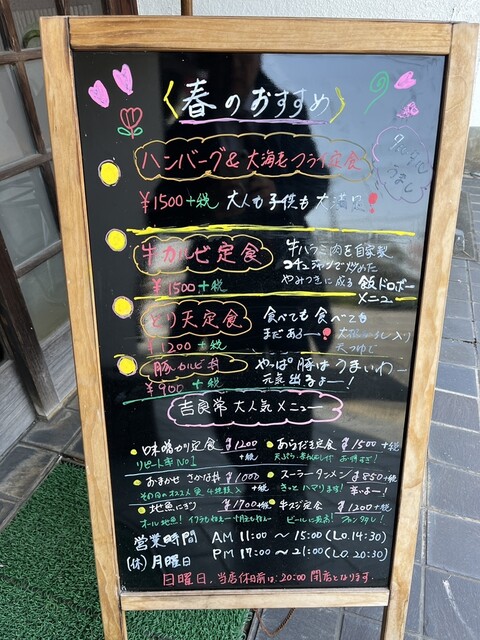 春のおすすめ
ハンバーグ& 大海老フライ定食
¥1500+税 大人も子供も大満足!
牛カルビ定食
¥1500+税
牛ハラミ肉を自家製
コチュジャンで炒めた
やみつきに成る 飯ドロボー
メニュー
とり天定食
¥1200+税
食べても食べても
まだあるー! 大根おろし入り
天つゆで
豚カルビ丼
¥900+税
やっぱ豚はうまいわー
元気出るよー!
吉良常 大人気メニュー
味噌かつ定食 ¥1200+税
リピート率No1
あらだき定食 ¥1500+税
おまかせ さかな丼 ¥1000+税
スーラータンメン ¥850+税
きっとハマります! 辛いよー!
地魚にぎり ¥1700+税
オール地魚!
牛スジ定食 ¥1200+税
ビールに最高! ファン多し!
営業時間 AM 11:00〜15:00(L.O.14:30)
(休)月曜日 PM 17:00〜21:00(L.O.20:30)
日曜日、当店休日前は20:00閉店となります。